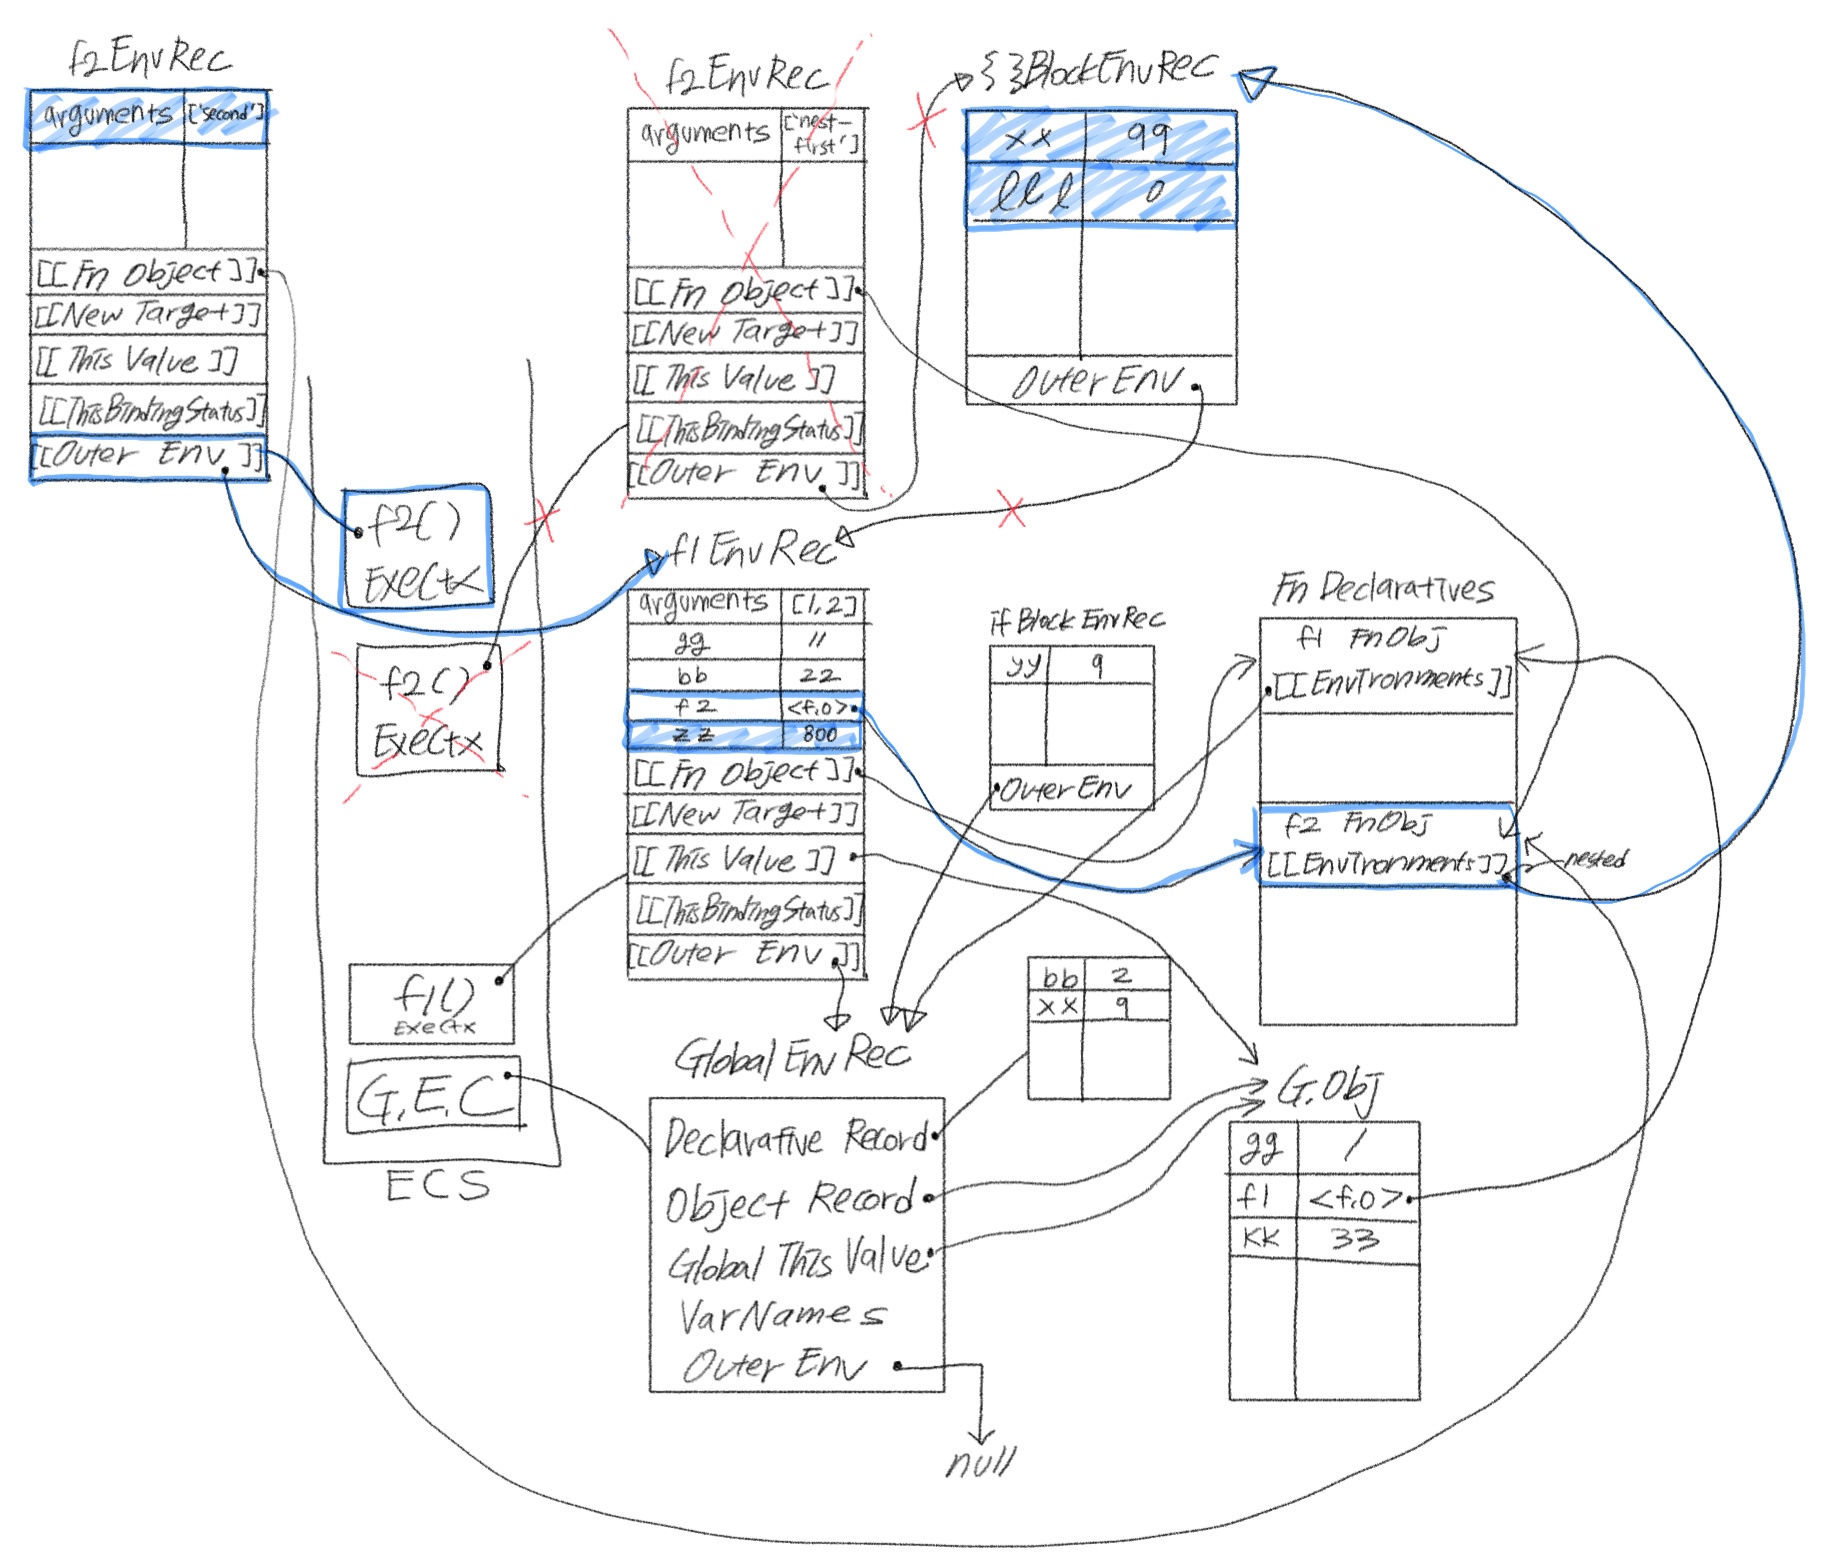 f2EnvRec
arguments ['second']
[[Fn Object]]
[[New Target]]
[[This Value]]
[[ThisBindingStatus]]
[[Outer Env]]
f2EnvRec
arguments ['nest-
first']
[[Fn Object]]
[[New Target]]
[[This Value]]
[[ThisBindingStatus]]
[[Outer Env]]
{ }BlockEnvRec
xx 99
lll 0
OuterEnv
f2()
ExeCtx
f2()
ExeCtx
f1()
ExeCtx
G.E.C
ECS
f1EnvRec
arguments [1,2]
gg 11
bb 22
f2 <f.o>
zz 800
[[Fn Object]]
[[New Target]]
[[This Value]]
[[ThisBindingStatus]]
[[Outer Env]]
if Block EnvRec
yy 9
OuterEnv
Fn Declaratives
f1 FnObj
[[Environments]]
f2 FnObj
[[Environments]]
nested
bb 2
xx 9
Global Env Rec
Declarative Record
Object Record
Global This Value
VarNames
Outer Env
null
G.Obj
gg 1
f1 <f.o>
KK 33